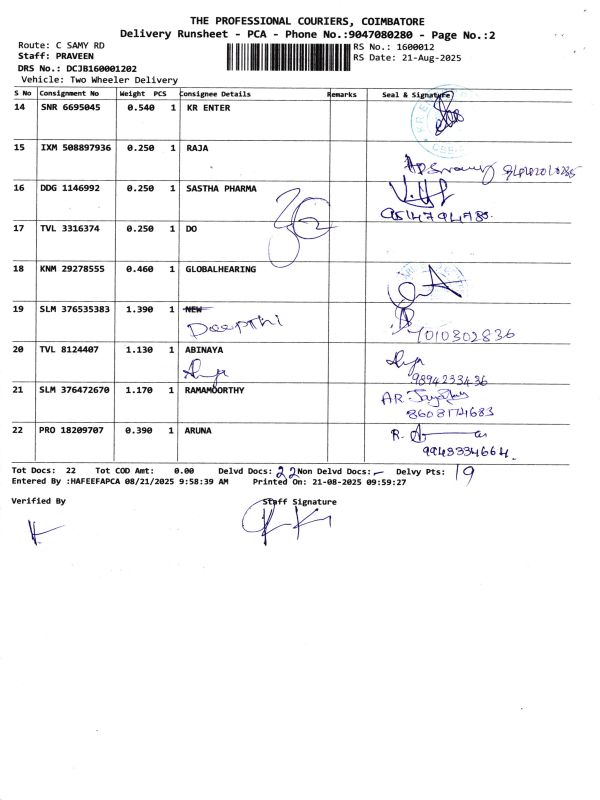 THE PROFESSIONAL COURIERS, COIMBATORE
Delivery Runsheet - PCA - Phone No.:9047080280 - Page No.:2
Route: C SAMY RD RS No.: 1600012
Staff: PRAVEEN RS Date: 21-Aug-2025
DRS No.: DCJB160001202
Vehicle: Two Wheeler Delivery
S No Consignment No Weight PCS Consignee Details Remarks Seal & Signature
14 SNR 6695045 0.540 1 KR ENTER
15 IXM 508897936 0.250 1 RAJA
16 DDG 1146992 0.250 1 SASTHA PHARMA
9514794785
17 TVL 3316374 0.250 1 DO
18 KNM 29278555 0.460 1 GLOBALHEARING
19 SLM 376535383 1.390 1 NEW
Deepthi 7010302836
20 TVL 8124407 1.130 1 ABINAYA
9894233436
21 SLM 376472670 1.170 1 RAMAMOORTHY AR.
8608174683
22 PRO 18209707 0.390 1 ARUNA R.
9948334664
Tot Docs: 22 Tot COD Amt: 0.00 Delvd Docs: 22 Non Delvd Docs: - Delvy Pts: 19
Entered By :HAFEEFAPCA 08/21/2025 9:58:39 AM Printed On: 21-08-2025 09:59:27
Verified By Staff Signature